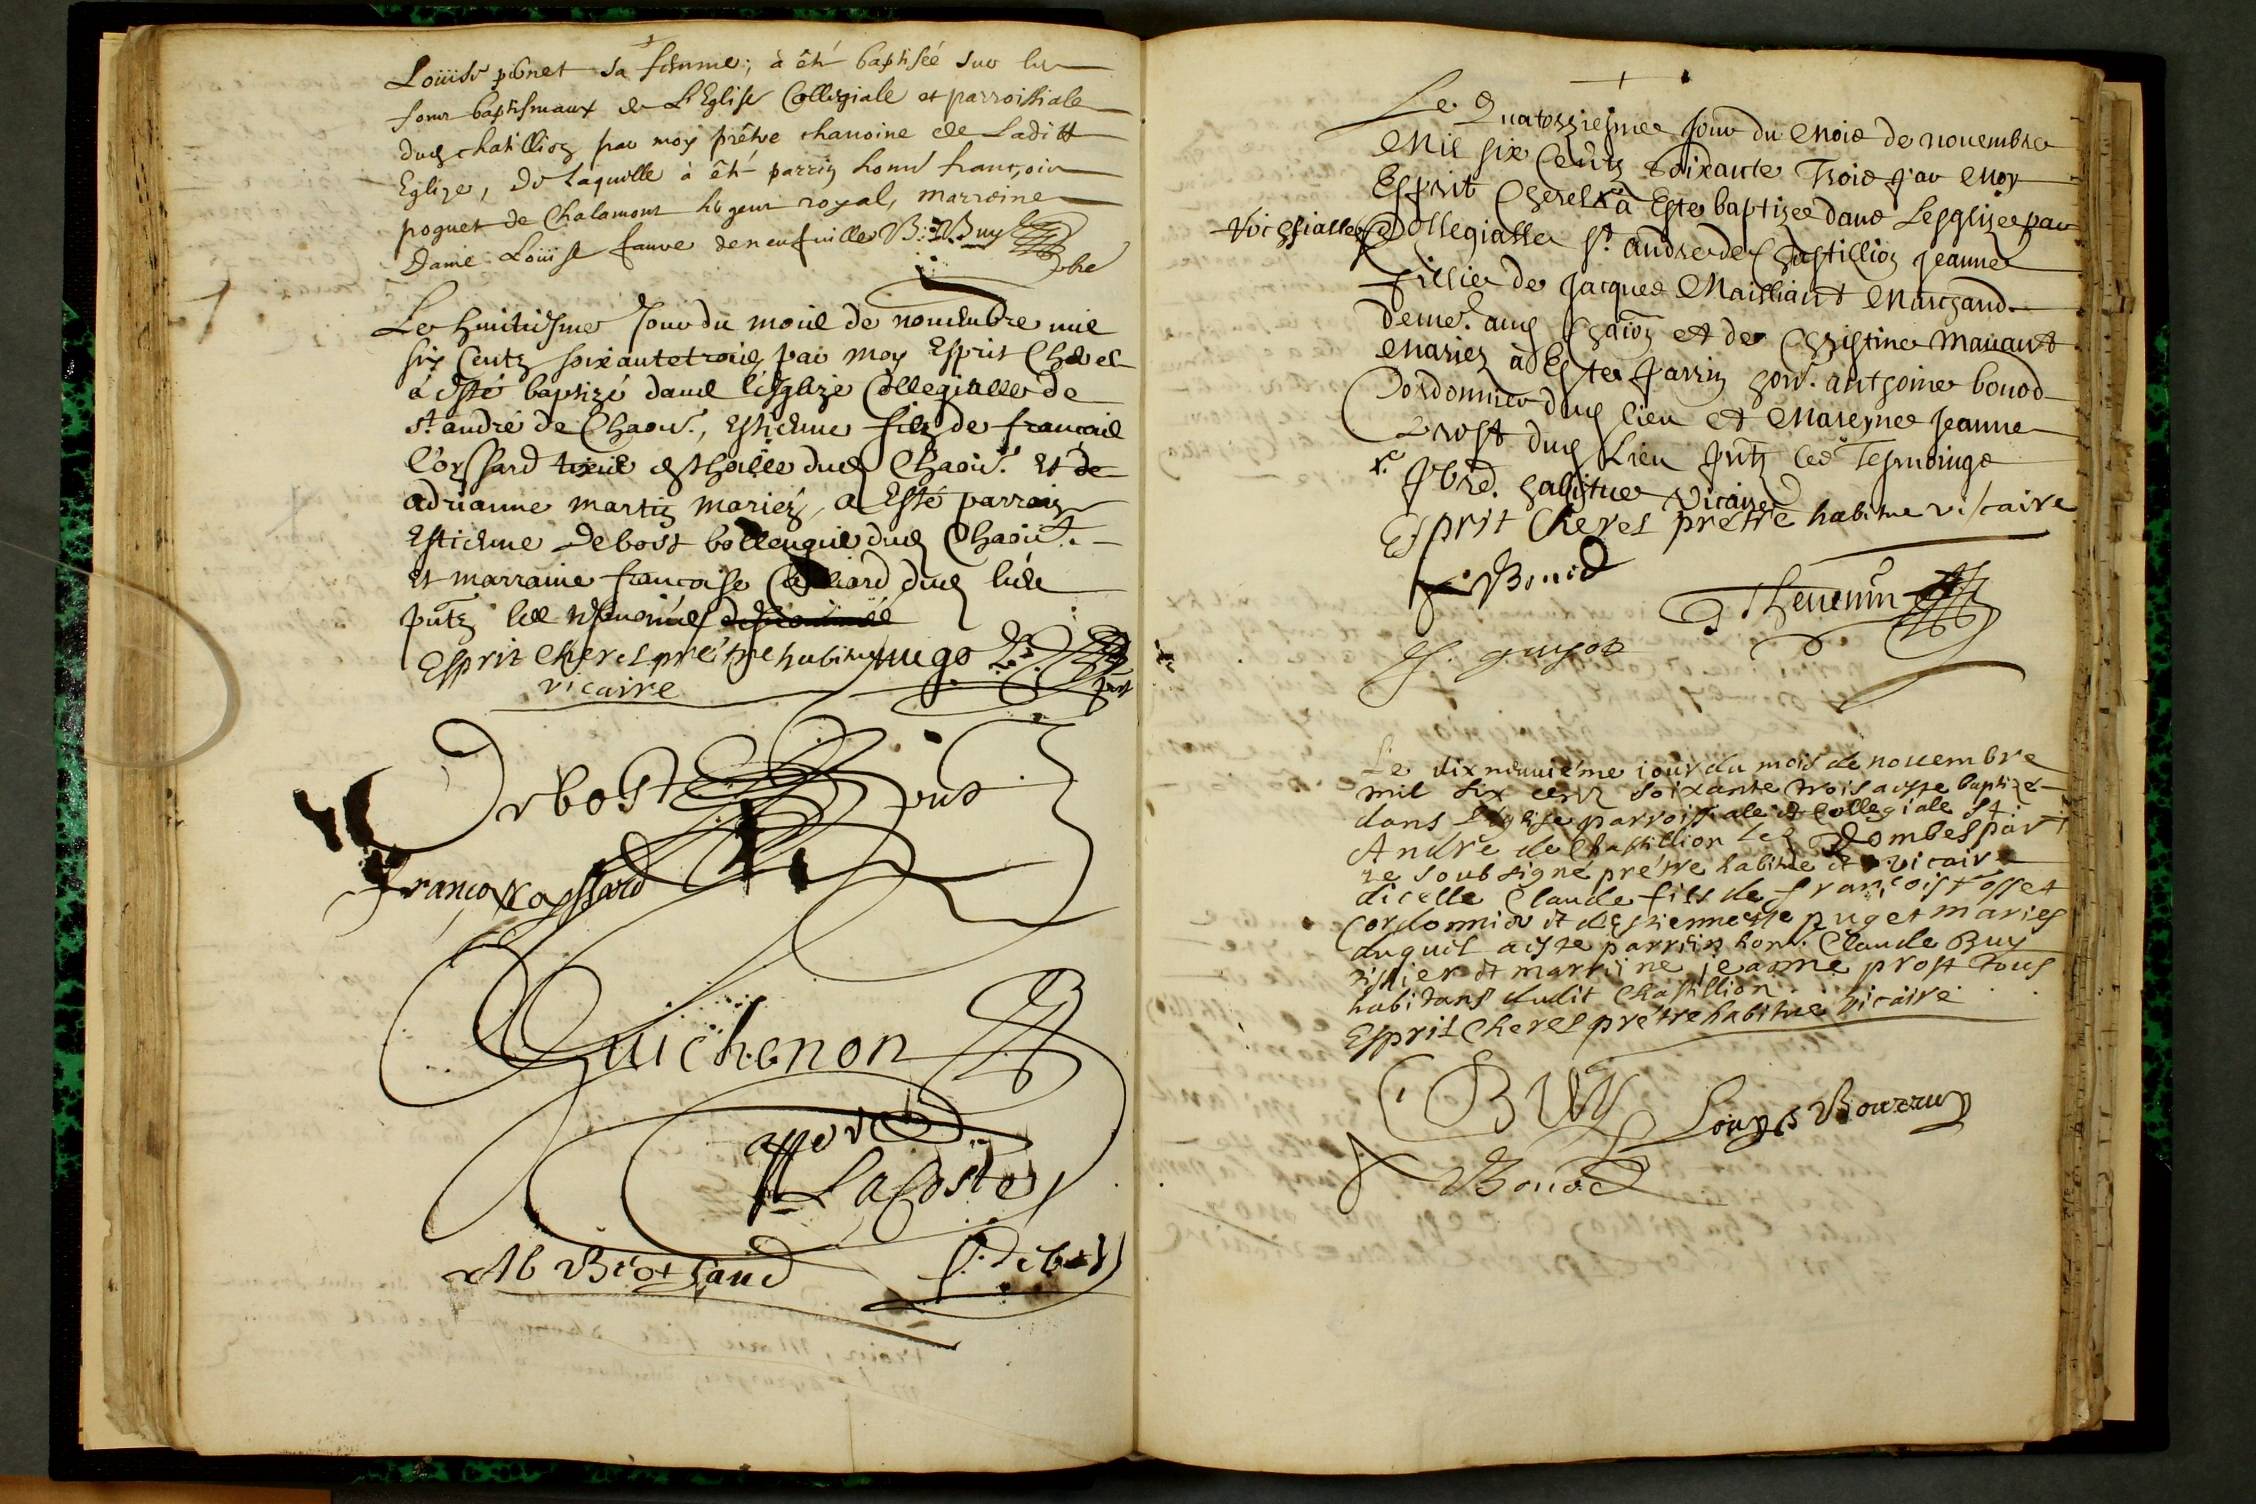 Loüise ponet sa femme, à été baptisée sur les
fons baptismaux de L'Eglise Collegiale et parroissiale
dud chatillion par moy prêtre chanoine de Laditt
Eglize, de laquelle à été parrin honn francois
poguet de Chalamont royal, marreine
Dame Loüise faure de neufuille Buy
pbre
Le huitiesme Jour du mois de nouembre mil
six Centz soixantetrois par moy Esprit Cherel
á esté baptizé dans l'esglize Collegialle de
st andré de Chaon., Estienne filz de francois
Corssard dud Chaon. et de
adrianne martin mariéz, a Esté parrain
Estienne debost bollengier dud Chaon.
et marraine francoise dud lieu
pntz les tesmoins
Esprit Cherel prétre habitue hugo
vicaire
Debost pnt
François Cossard
Guichenon
appert
Lacoste
Debost
Le Quatorziesme Jour du Mois de nouembre
Mil six Centz Soixante Trois par Moy
Esprit Cherel x a Este baptizee dans Lesglize par
roissialle Collegialle st. andre de Chastillion Jeanne
fillie de Jacques Mailliant Marchand
deme. aud Chaon et de Christine Mauant
Mariez à Este Parrin hon. anthoine bouod
Cordonnier dud lieu et Mareyne Jeanne
Prost dud Lieu pntz les Tesmoings
x pbre. habitue Vicaire
Esprit Cherel prétre habitue vicaire
Bouod
Theuenin
guyot
Le dixneuuiéme iour du mois de nouembre
mil six cens soixante trois a este baptizé
dans l'eglise parroissiale et Collegiale st
André de Chastillion lez Dombes par
ze soubsigne prétre habitue et vicaire
dicelle Claude fils de francois fosset
Cordonnier et destiennette puget maries
duquel a este parrein hon. Claude Buy
et marreine jeanne prost tous
habitans dudit Chastillion
Esprit Cherel prétre habitue vicaire
BUY
Louys Bourrun
Bouod